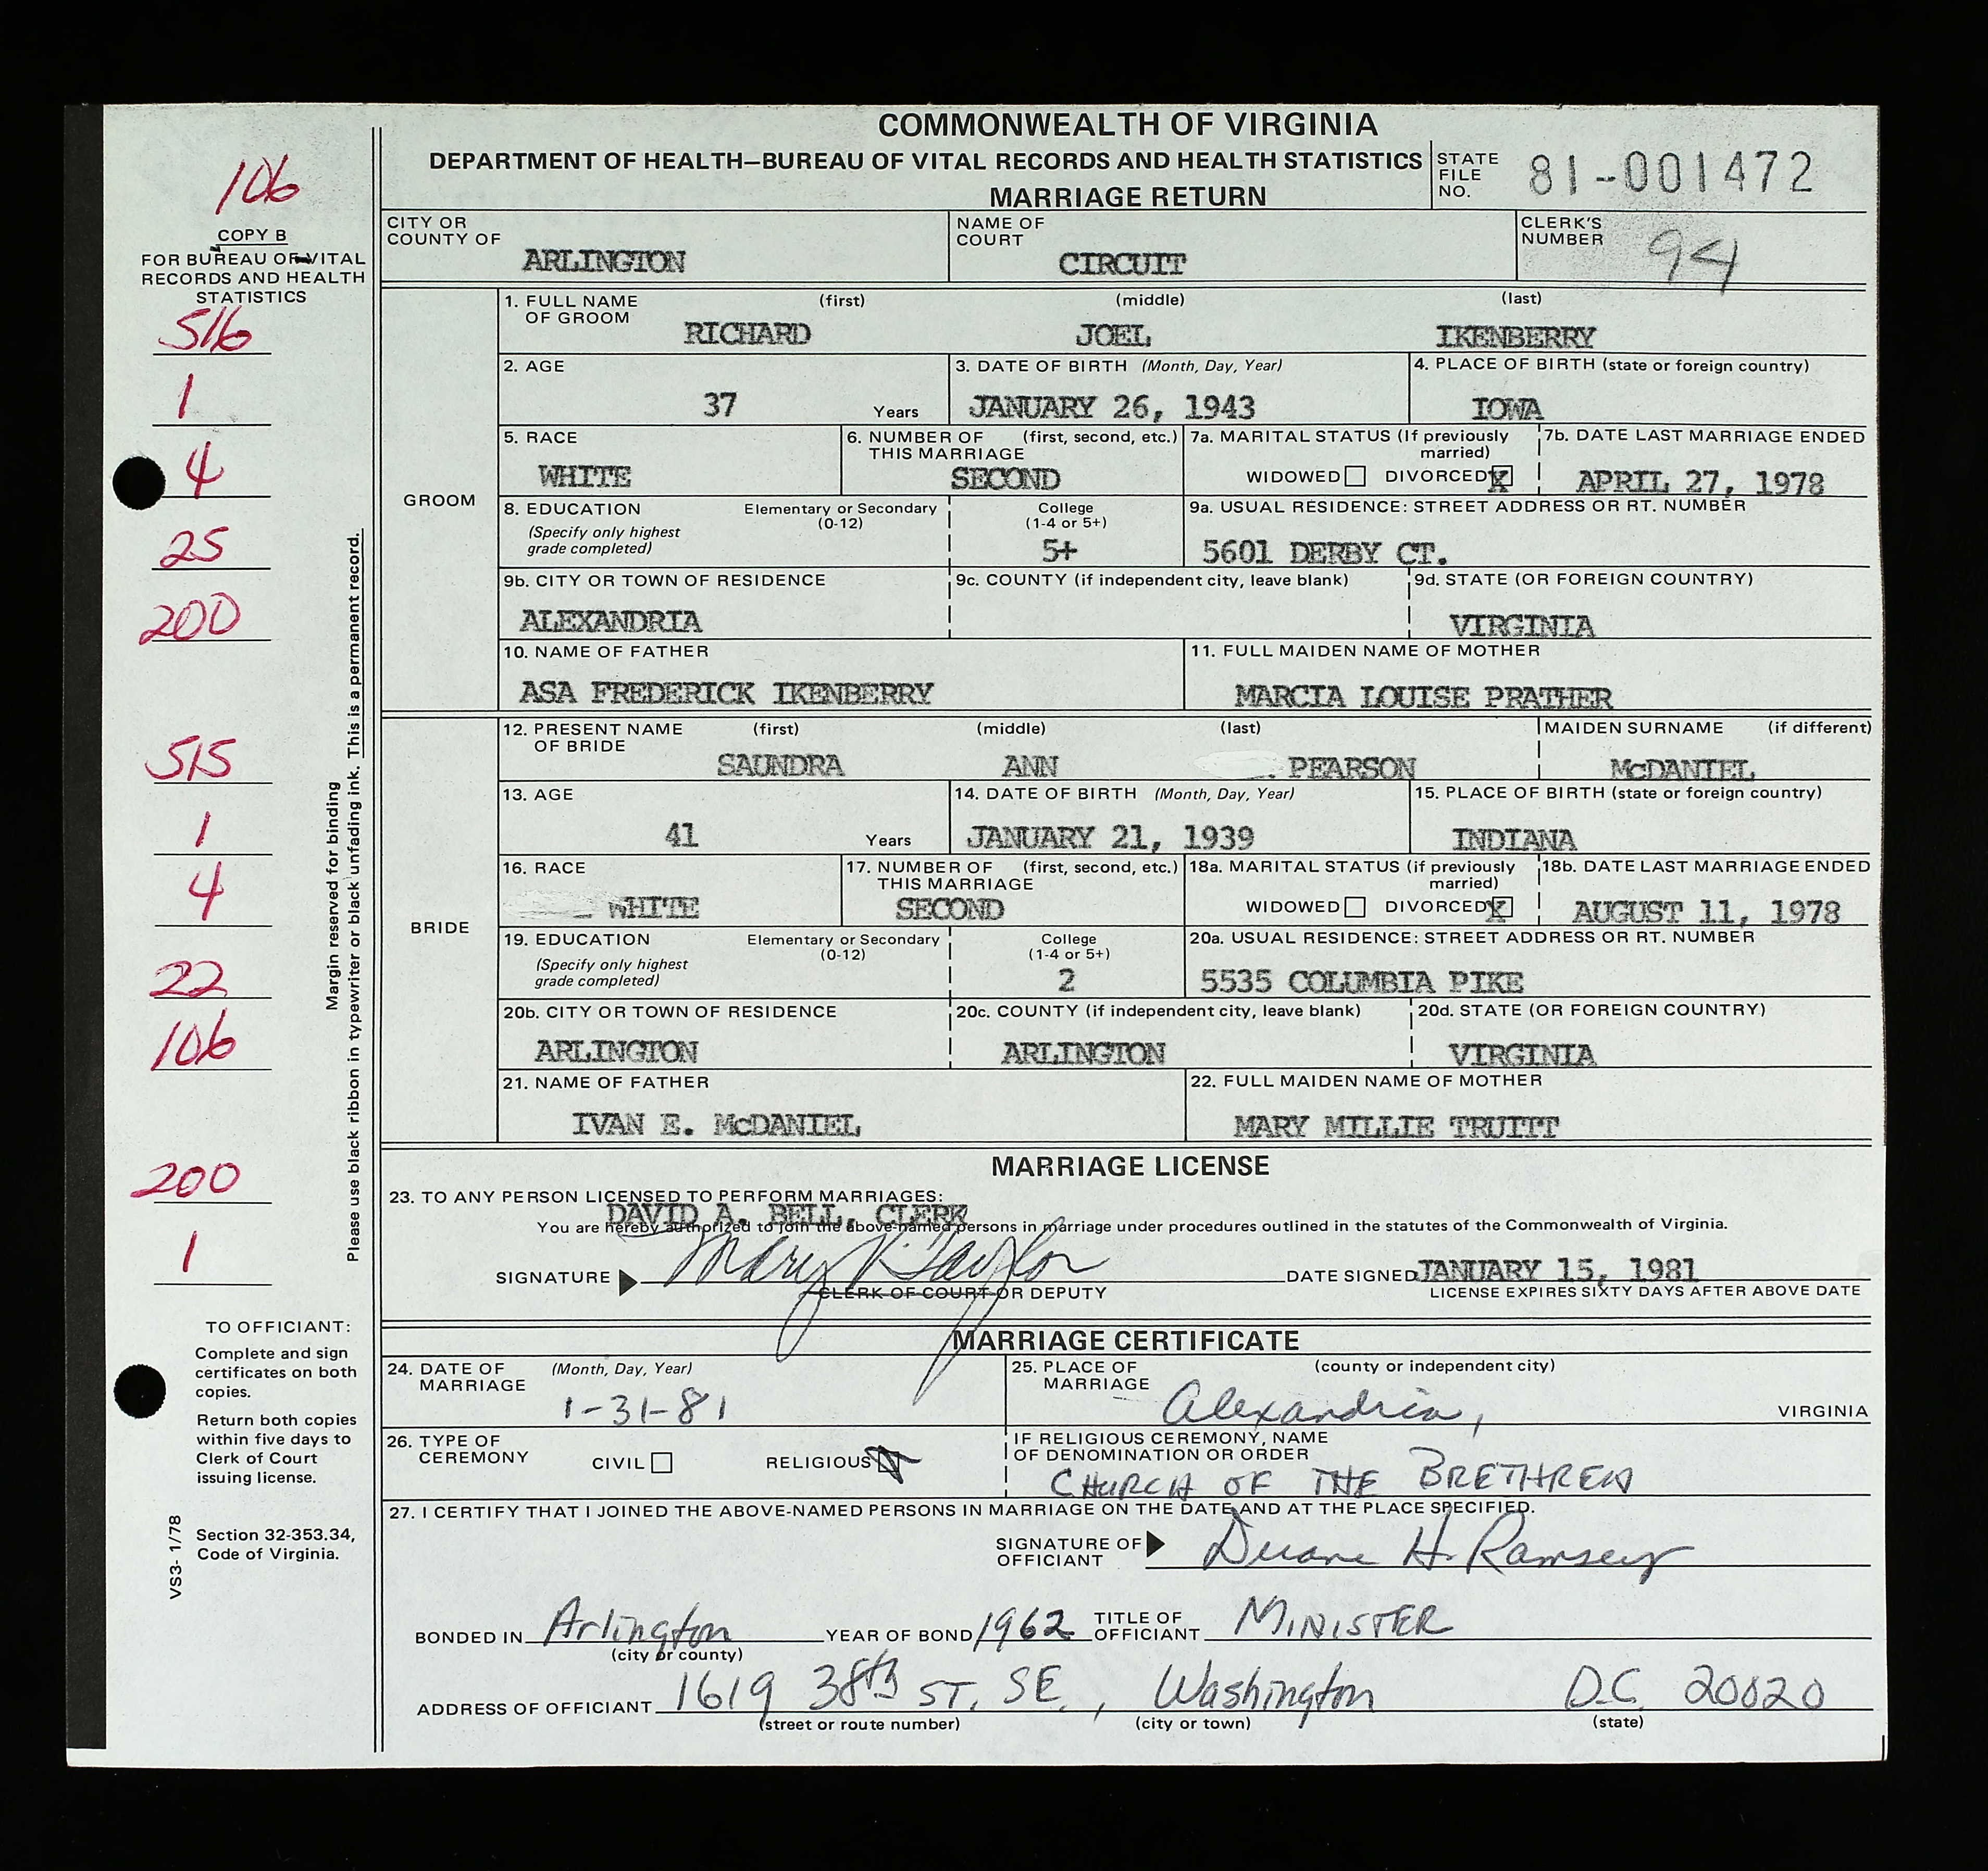 COMMONWEALTH OF VIRGINIA
DEPARTMENT OF HEALTH—BUREAU OF VITAL RECORDS AND HEALTH STATISTICS
MARRIAGE RETURN
STATE FILE NO. 81-001472
106
COPY B
FOR BUREAU OF VITAL
RECORDS AND HEALTH
STATISTICS
516
1
4
25
200
515
1
4
22
106
200
1
Margin reserved for binding
Please use black ribbon in typewriter or black unfading ink. This is a permanent record.
TO OFFICIANT:
Complete and sign
certificates on both
copies.
Return both copies
within five days to
Clerk of Court
issuing license.
Section 32-353.34,
Code of Virginia.
VS3- 1/78
CITY OR COUNTY OF ARLINGTON
NAME OF COURT CIRCUIT
CLERK'S NUMBER 94
GROOM
1. FULL NAME OF GROOM (first) (middle) (last)
RICHARD JOEL IKENBERRY
2. AGE 37 Years
3. DATE OF BIRTH (Month, Day, Year) JANUARY 26, 1943
4. PLACE OF BIRTH (state or foreign country) IOWA
5. RACE WHITE
6. NUMBER OF THIS MARRIAGE (first, second, etc.) SECOND
7a. MARITAL STATUS (If previously married)
WIDOWED DIVORCED X
7b. DATE LAST MARRIAGE ENDED APRIL 27, 1978
8. EDUCATION (Specify only highest grade completed)
Elementary or Secondary (0-12)
College (1-4 or 5+) 5+
9a. USUAL RESIDENCE: STREET ADDRESS OR RT. NUMBER
5601 DERBY CT.
9b. CITY OR TOWN OF RESIDENCE ALEXANDRIA
9c. COUNTY (if independent city, leave blank)
9d. STATE (OR FOREIGN COUNTRY) VIRGINIA
10. NAME OF FATHER ASA FREDERICK IKENBERRY
11. FULL MAIDEN NAME OF MOTHER MARCIA LOUISE PRATHER
BRIDE
12. PRESENT NAME OF BRIDE (first) (middle) (last)
SAUNDRA ANN PEARSON
MAIDEN SURNAME (if different) McDANIEL
13. AGE 41 Years
14. DATE OF BIRTH (Month, Day, Year) JANUARY 21, 1939
15. PLACE OF BIRTH (state or foreign country) INDIANA
16. RACE WHITE
17. NUMBER OF THIS MARRIAGE (first, second, etc.) SECOND
18a. MARITAL STATUS (if previously married)
WIDOWED DIVORCED X
18b. DATE LAST MARRIAGE ENDED AUGUST 11, 1978
19. EDUCATION (Specify only highest grade completed)
Elementary or Secondary (0-12)
College (1-4 or 5+) 2
20a. USUAL RESIDENCE: STREET ADDRESS OR RT. NUMBER
5535 COLUMBIA PIKE
20b. CITY OR TOWN OF RESIDENCE ARLINGTON
20c. COUNTY (if independent city, leave blank) ARLINGTON
20d. STATE (OR FOREIGN COUNTRY) VIRGINIA
21. NAME OF FATHER IVAN E. McDANIEL
22. FULL MAIDEN NAME OF MOTHER MARY MILLIE TRUITT
MARRIAGE LICENSE
23. TO ANY PERSON LICENSED TO PERFORM MARRIAGES:
DAVID A. BELL, CLERK
You are hereby authorized to join the above-named persons in marriage under procedures outlined in the statutes of the Commonwealth of Virginia.
SIGNATURE Mary K. Taylor
DATE SIGNED JANUARY 15, 1981
CLERK OF COURT OR DEPUTY
LICENSE EXPIRES SIXTY DAYS AFTER ABOVE DATE
MARRIAGE CERTIFICATE
24. DATE OF MARRIAGE (Month, Day, Year) 1-31-81
25. PLACE OF MARRIAGE (county or independent city) Alexandria, VIRGINIA
26. TYPE OF CEREMONY CIVIL RELIGIOUS
IF RELIGIOUS CEREMONY, NAME
OF DENOMINATION OR ORDER
CHURCH OF THE BRETHREN
27. I CERTIFY THAT I JOINED THE ABOVE-NAMED PERSONS IN MARRIAGE ON THE DATE AND AT THE PLACE SPECIFIED.
SIGNATURE OF OFFICIANT Duane H. Ramsey
BONDED IN Arlington YEAR OF BOND 1962 TITLE OF OFFICIANT MINISTER
(city or county)
ADDRESS OF OFFICIANT 1619 38th ST. SE., Washington D.C. 20020
(street or route number) (city or town) (state)